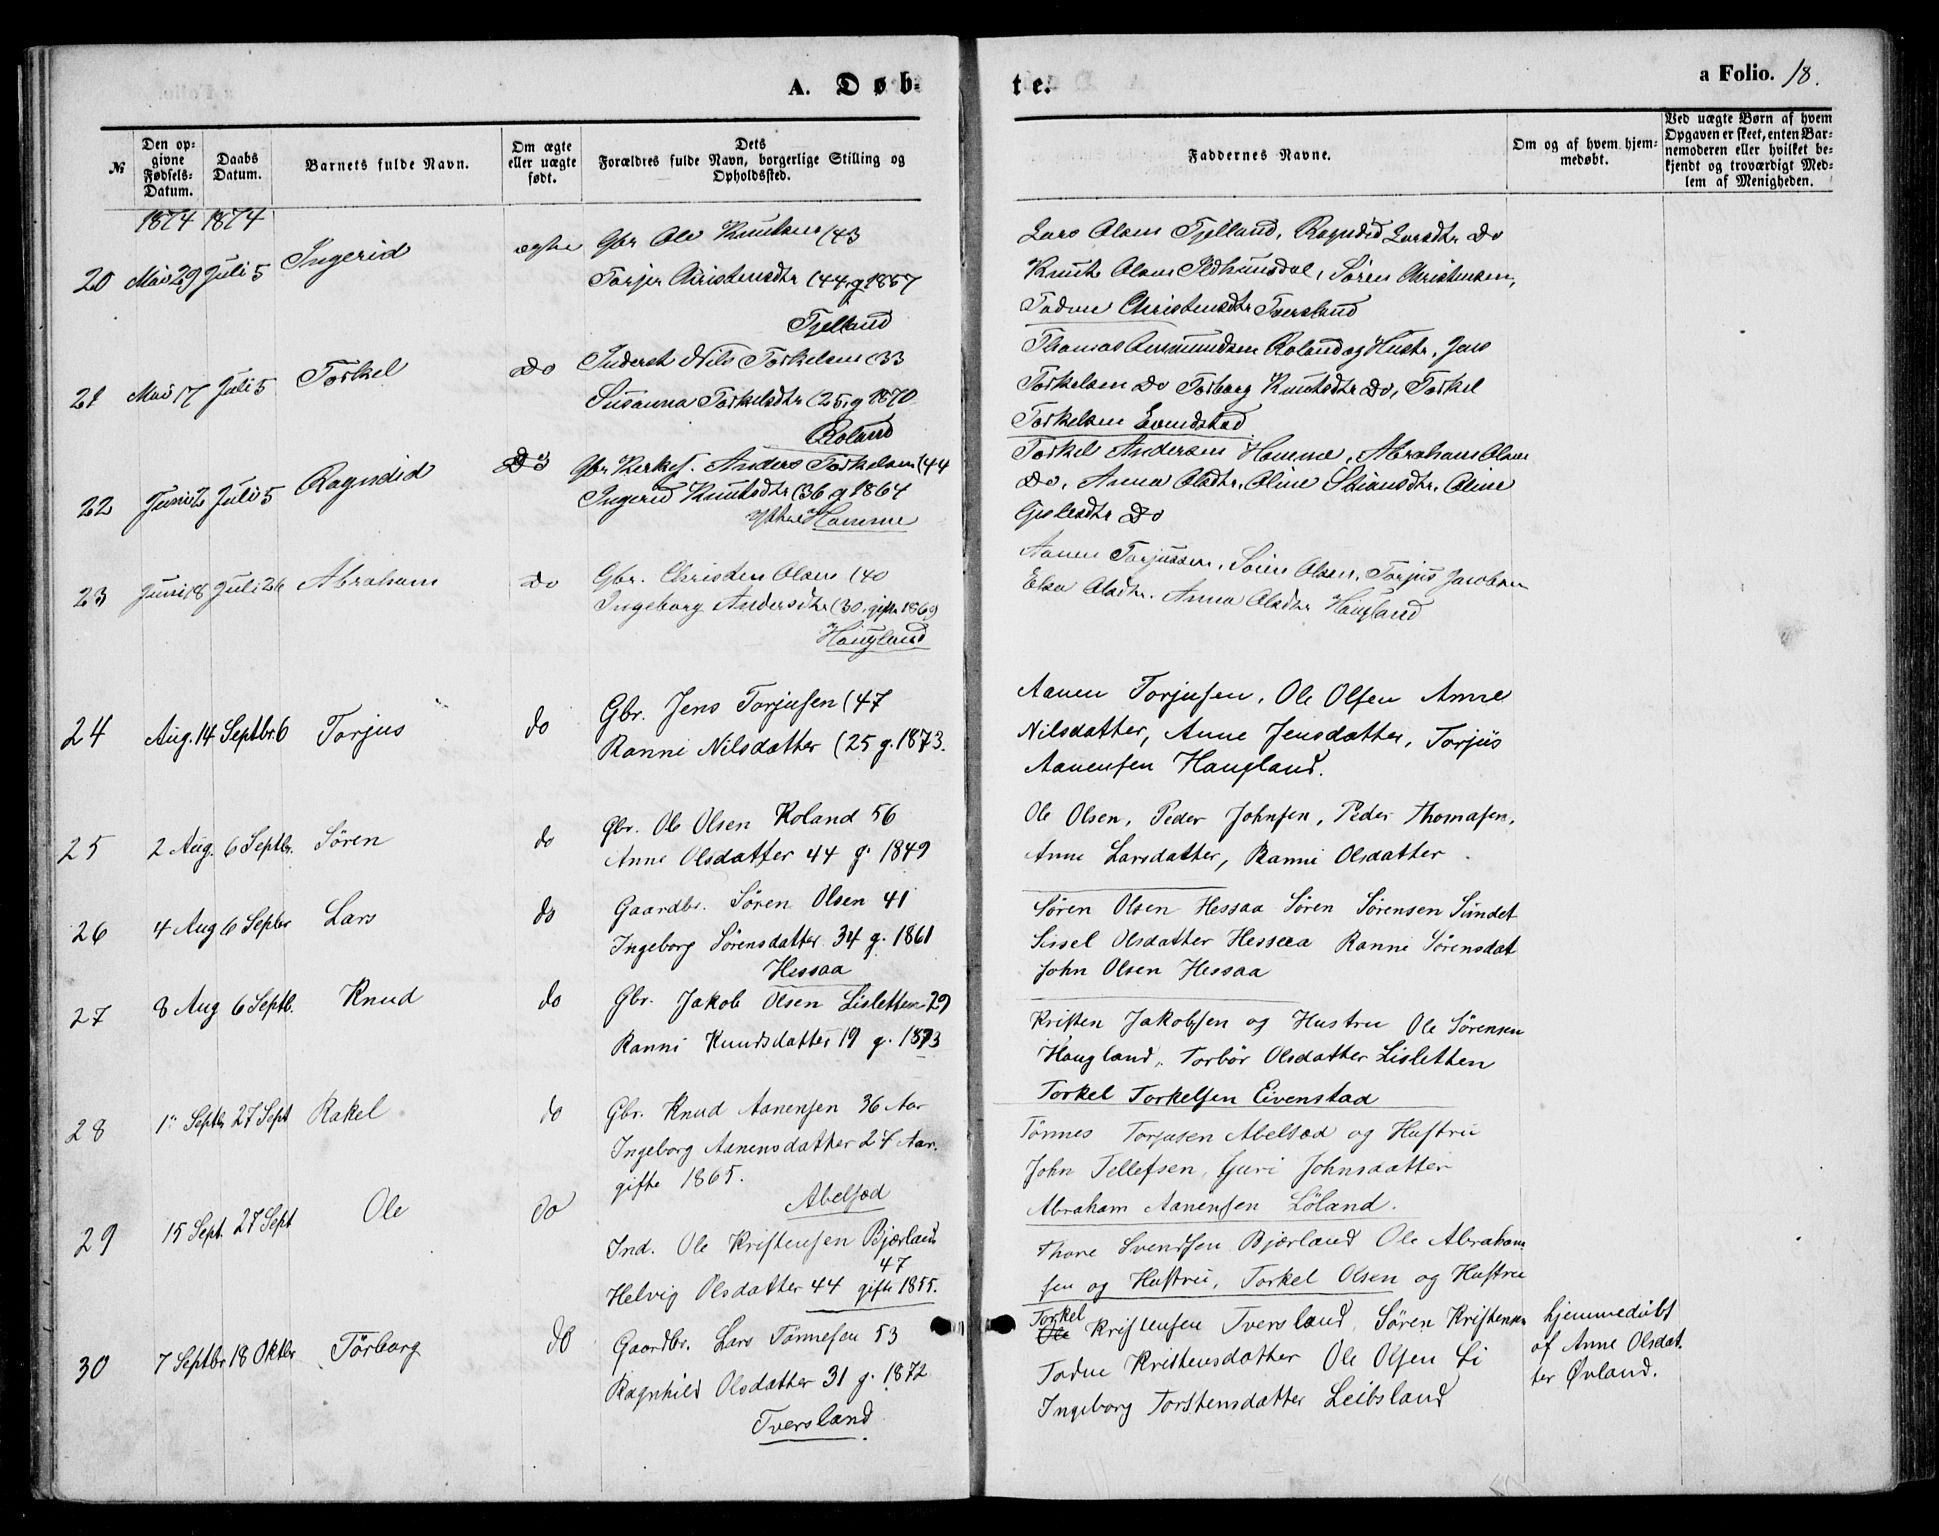 A. Døb-
te.
a Folio. 18.
№
Den op-
givne
Fødsels-
Datum.
Daabs
Datum.
Barnets fulde Navn.
Om ægte
eller uægte
født.
Dets
Forældres fulde Navn, borgerlige Stilling og
Opholdssted.
Faddernes Navne.
Om og af hvem hjem-
medøbt.
Ved uægte Børn af hvem
Opgaven er skeet, enten Bar-
nemoderen eller hvilket be-
kjendt og troværdigt Med-
lem af Menigheden.
1874 1874
20 Mai 29 Juli 5 Ingerid ægte Gbr Ole Knutsen (43
Torjer Christensdtr (44 g 1857
Tjelland
Lars Olsen Tjelland, Ragndid Larsdtr Do
Knut Olsen, Sören Christensen,
Todne Christensdtr Tversland
21 Mai 17 Juli 5 Torkel Do Inderst Nils Torkelsen (33
Susanna Torkelsdtr (25 g 1870
Roland
Thomas Aamundsen Roland og Hustr, Jens
Torkelsen Do Torborg Knutsdtr Do, Torkel
Torkelsen Evindstad
22 Juni 2 Juli 5 Ragndid Do Gbr Kirkes. Anders Torkelsen (44
Ingerid Knutsdtr (36 g 1864
Ythre Homme
Torkel Andersen Homme, Abraham Olsen
Do, Anna Olsdtr, Oline Stiansdtr, Oline
Gislesdtr Do
23 Juni 18 Juli 26 Abraham Do Gbr. Christen Olsen (40
Ingeborg Andersdtr (30, gifte 1869
Haugland
Aanen Torjussen, Sören Olsen, Torjus Jacobsen
Elsa Olsdtr. Anna Olsdtr Haugland
24 Aug. 14 Septbr. 6 Torjus do Gbr. Jens Torjusen (47
Ranni Nilsdatter (25 g. 1873.
Aanen Torjusen, Ole Olsen Anne
Nilsdatter, Anne Jensdatter, Torjus
Aanensen Haugland.
25 2 Aug. 6 Septbr. Sören do Gbr. Ole Olsen Roland 56
Anne Olsdatter 44 g. 1849
Ole Olsen, Peder Johnsen, Peder Thomasen,
Anne Larsdatter, Ranni Olsdatter
26 4 Aug 6 Sepbr Lars do Gaardbr. Sören Olsen 41
Ingeborg Sörensdatter 34 g. 1861
Hessaa
Sören Olsen Hessaa Sören Sörensen Sundet
Sissel Olsdatter Hessaa Ranni Sörensdat
John Olsen Hessaa
27 8 Aug 6 Septb. Knud do Gbr. Jakob Olsen Lisletten 29
Ranni Knudsdatter 19 g. 1873
Kristen Jakobsen og Hustru Ole Sörensen
Haugland, Torbör Olsdatter Lisletten
Torkel Torkelsen Eivenstad
28 1ᵉ Septbr 27 Sept Rakel do Gbr. Knud Aanensen 36 Aar
Ingeborg Aanensdatter 27 Aar.
gifte 1865.
Abelsæd
Tönnes Torjusen Abelsæd og Hustru
John Tellefsen, Guri Johnsdatter
Abraham Aanensen Löland.
29 15 Sept. 27 Sept Ole do Ind. Ole Kristensen Bjærland
47
Helvig Olsdatter 44 gifte 1855.
Thore Svendsen Bjærland Ole Abraham
sen og Hustru, Torkel Olsen og Hustru
30 7 Septbr 18 Oktbr Törborg do Gaardbr. Lars Tönnesen 53
Ragnhild Olsdatter 31 g. 1872
Tversland
Torkel
Ole Kristensen Tversland, Sören Kristensen
Todne Kristensdatter Ole Olsen Li
Ingeborg Torstensdatter Leibsland
hjemmedöbt
af Anne Olsdat
ter Øvland.